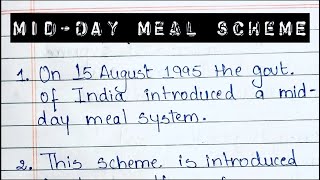 MID-DAY MEAL SCHEME
1. On 15 August 1995 the govt.
of India introduced a mid-
day meal system.
2. This scheme is introduced